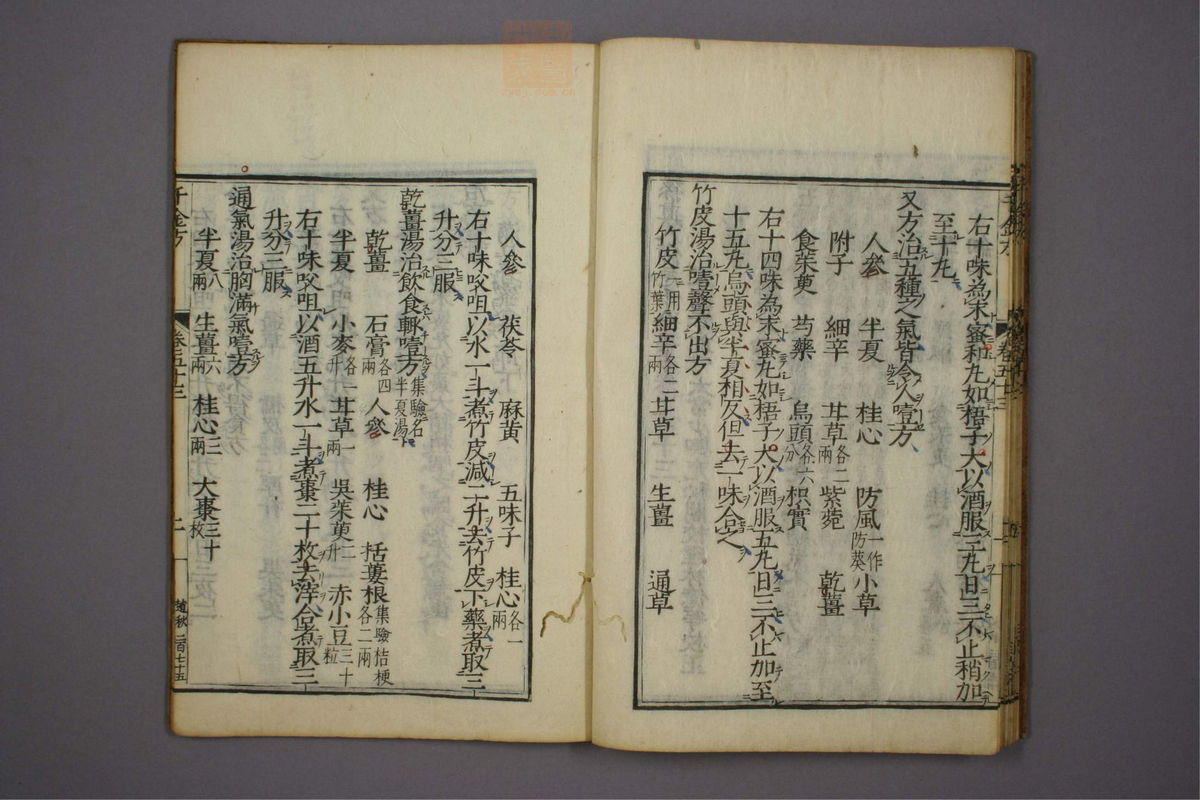 右十味為末蜜和丸如梧子大以酒服三丸日三不止稍加
至十丸
又方治五種之氣皆令人噎方
人參 半夏 桂心 防風一作防葵 小草
附子 細辛 甘草各二兩 紫菀 乾薑
食茱萸 芍藥 烏頭各六分 枳實
右十四味為末蜜丸如梧子大以酒服五丸日三不止加至
十五丸烏頭與半夏相反但去一味合之
竹皮湯治噎聲不出方
竹皮一用竹葉 細辛各二兩 甘草 生薑 通草
人參 茯苓 麻黃 五味子 桂心各一兩
右十味㕮咀以水一斗煮竹皮減二升去竹皮下藥煮取三
升分三服
乾薑湯治飲食輒噎方集驗名半夏湯
乾薑 石膏各四兩 人參 桂心 括蔞根集驗桔梗各二兩
半夏 小麥各一升 甘草一兩 吳茱萸二升 赤小豆三十粒
右十味㕮咀以酒五升水一斗煮棗二十枚去滓合煮取三
升分三服
通氣湯治胸滿氣噎方
半夏八兩 生薑六兩 桂心三兩 大棗三十枚
千金方 卷五十三 二 趙秋 二百七十五